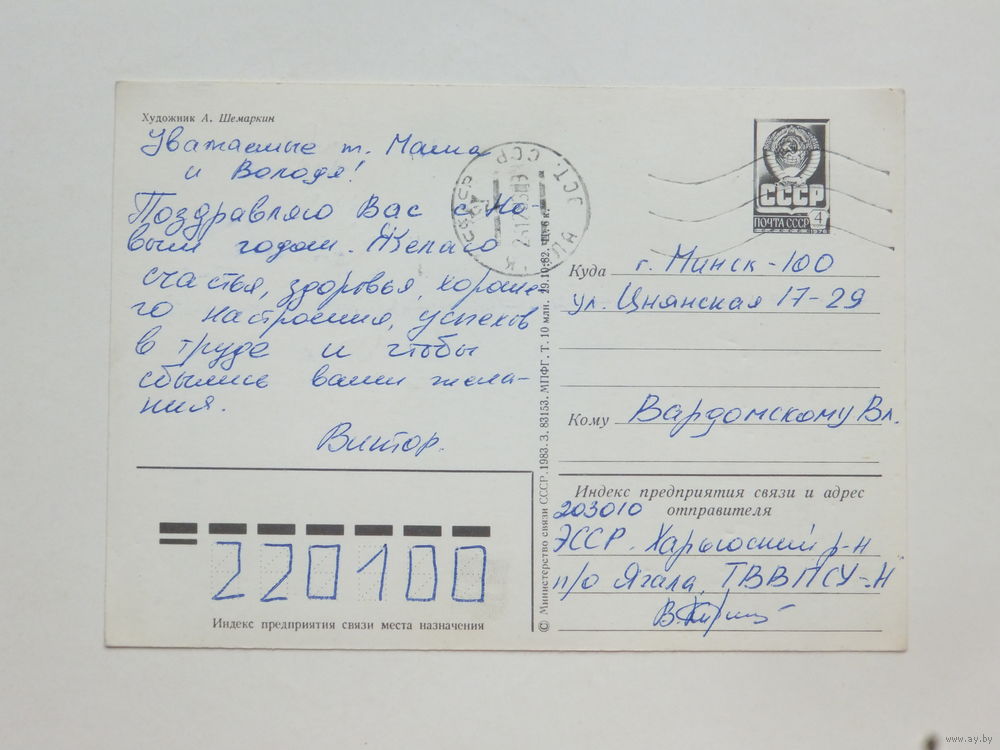 Художник А. Шемаркин
Уважаемые т. Маша
и Володя!
Поздравляю Вас с Но-
вым годом. Желаю
счастья, здоровья, хороше-
го настроения, успехов
в труде и чтобы
сбылись ваши жела-
ния.
Виктор.
220100
Индекс предприятия связи места назначения
© Министерство связи СССР. 1983. З. 83153. МПФГ. Т. 10 млн. 29.10.82. Ц. 6 к.
СССР
ПОЧТА СССР 4
Куда г. Минск-100
ул. Цнянская 17-29
Кому Вардомскому Вл.
Индекс предприятия связи и адрес
203010 отправителя
ЭССР. Харьюский р-н
п/о Ягала, ТВВПСУ-Н
www.ay.by